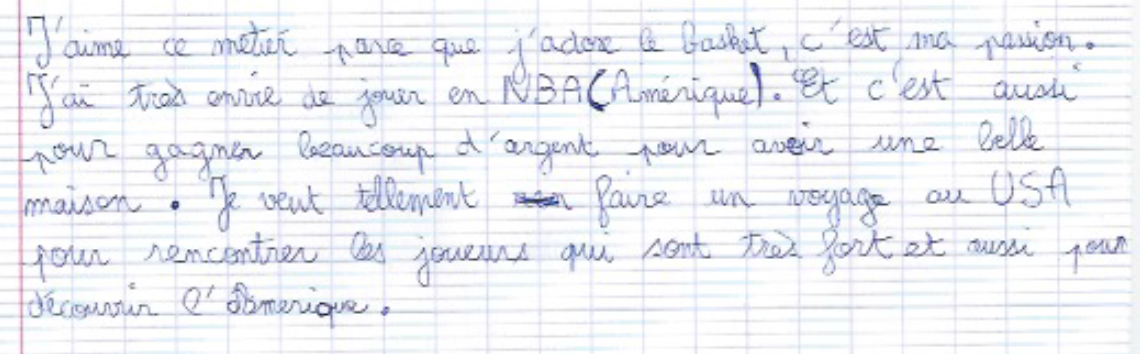 J'aime ce métier parce que j'adore le basket, c'est ma passion.
J'ai très envie de jouer en NBA (Amérique). Et c'est aussi
pour gagner beaucoup d'argent pour avoir une belle
maison. Je veut tellement faire un voyage au USA
pour rencontrer les joueurs qui sont très fort et aussi pour
découvrir l'Amerique.